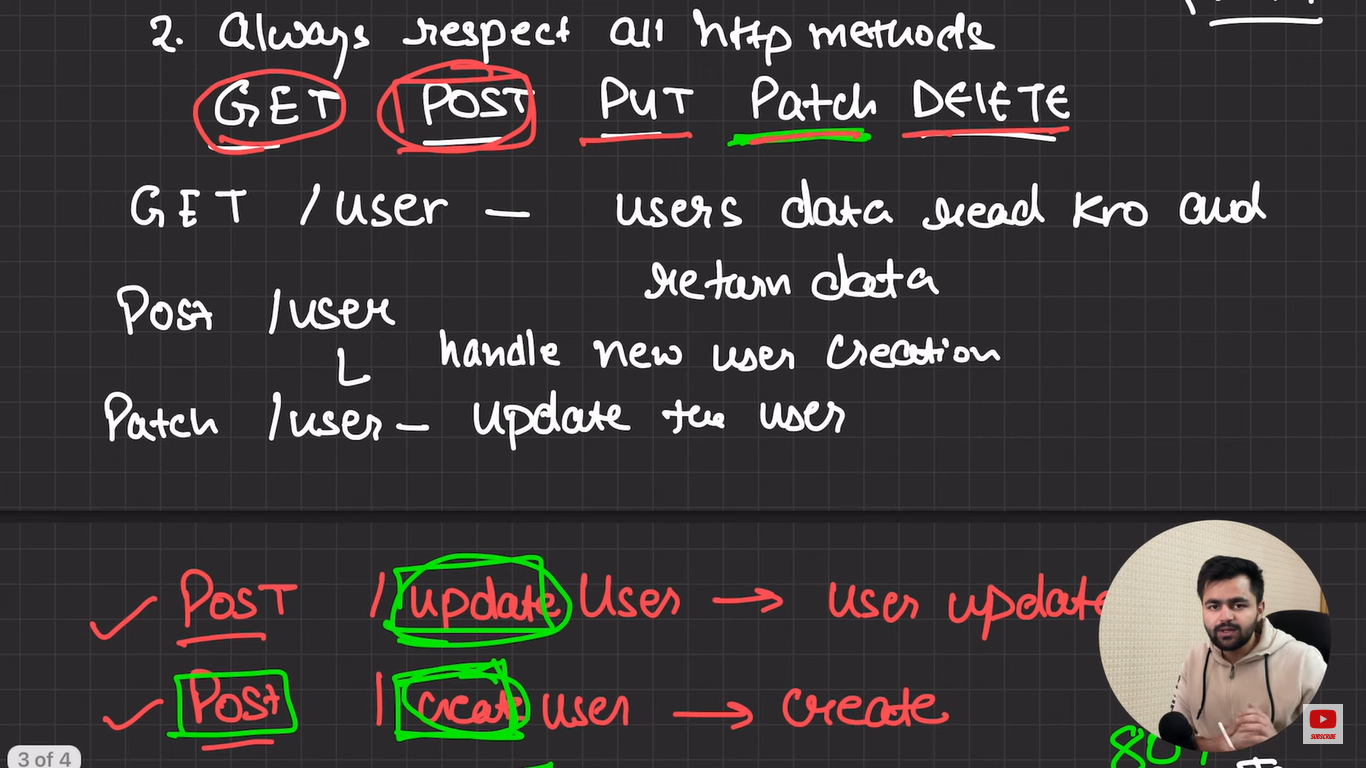 2. Always respect all http methods
GET POST PUT Patch DELETE
GET /user - users data read kro and
return data
Post /user
handle new user creation
Patch /user - update the user
✓ POST /update User → user update
✓ Post /create user → create
80%
3 of 4
SUBSCRIBE